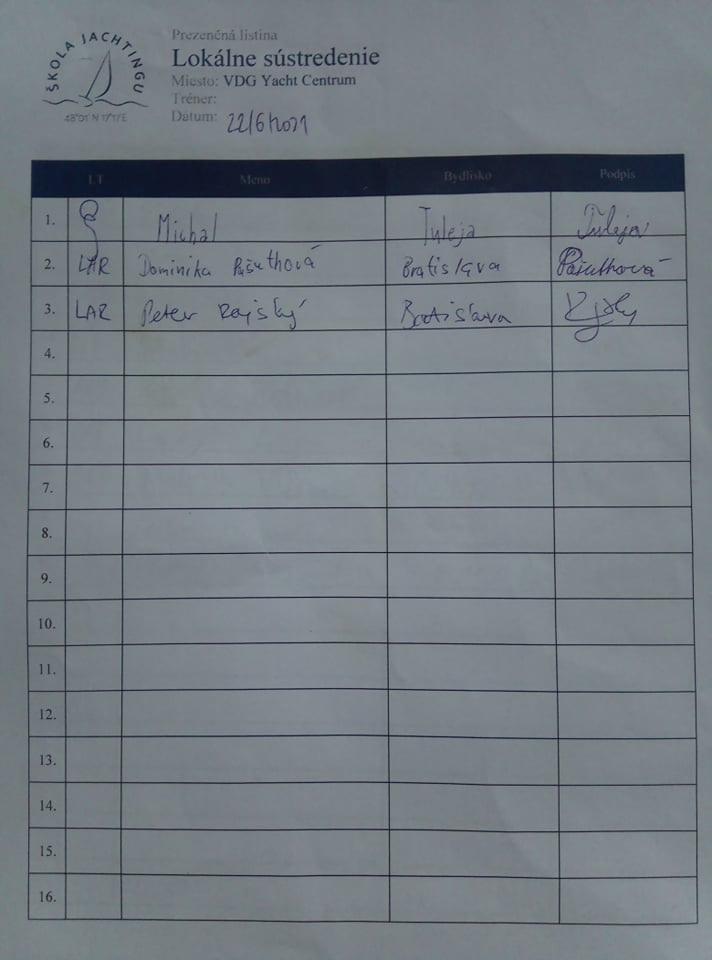 ŠKOLA JACHTINGU
48°01' N 17°17' E
Prezenčná listina
Lokálne sústredenie
Miesto: VDG Yacht Centrum
Tréner:
Dátum: 22/6/2021
LT Meno Bydlisko Podpis
1. Michal Tuleja Tuleja
2. LAR Dominika Pašuthová Bratislava Pašuthová
3. LAR Peter Rajský Bratislava
4.
5.
6.
7.
8.
9.
10.
11.
12.
13.
14.
15.
16.